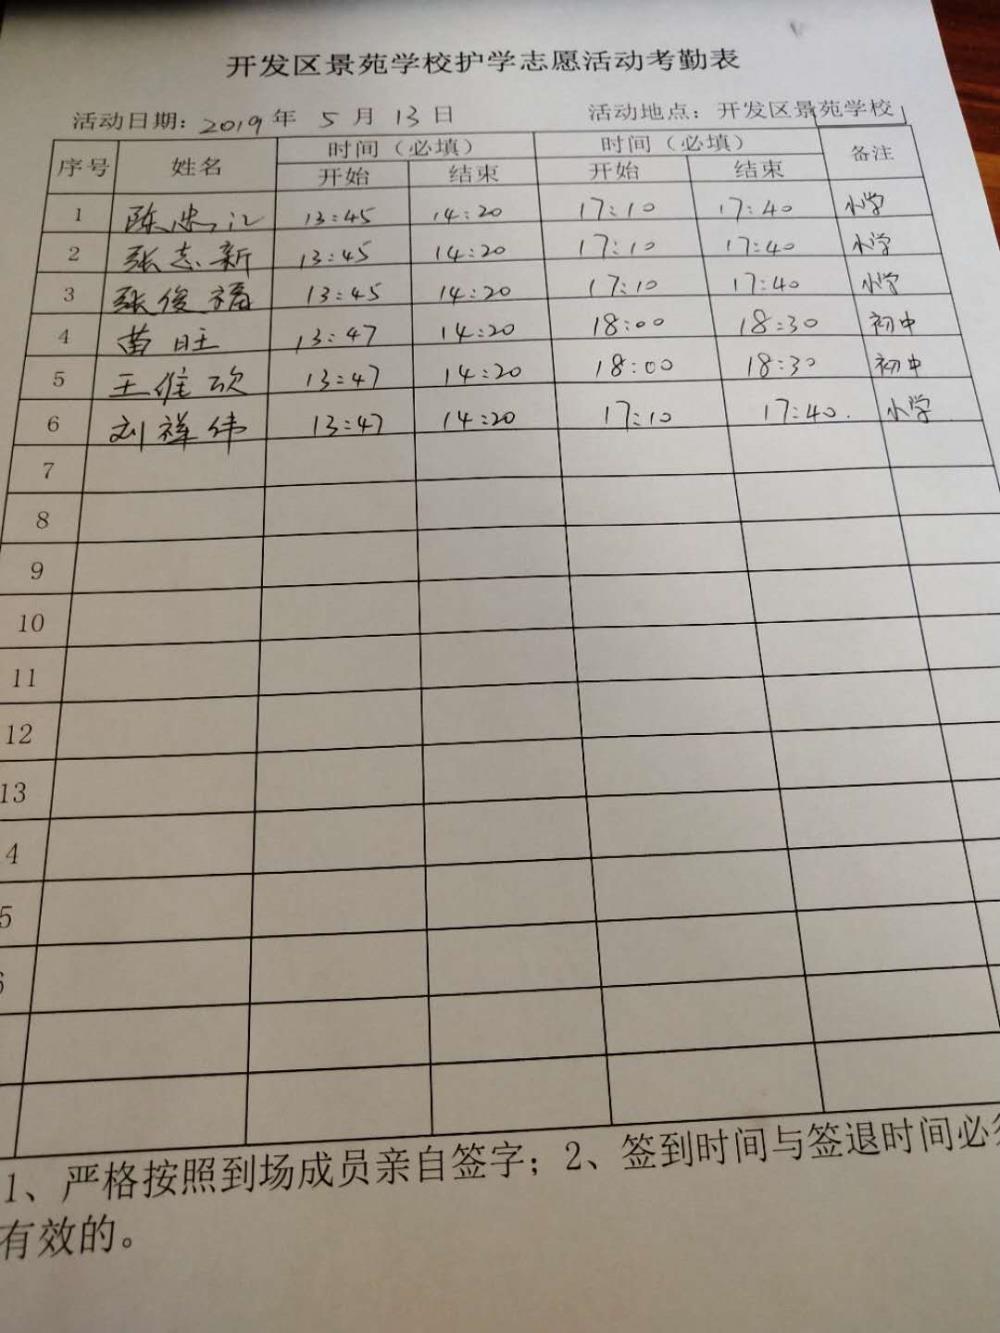 开发区景苑学校护学志愿活动考勤表
活动日期：2019年 5月 13日 活动地点：开发区景苑学校
序号 姓名 时间（必填） 时间（必填） 备注
开始 结束 开始 结束
1 陈忠江 13:45 14:20 17:10 17:40 小学
2 张志新 13:45 14:20 17:10 17:40 小学
3 张俊福 13:45 14:20 17:10 17:40 小学
4 苗旺 13:47 14:20 18:00 18:30 初中
5 王维欣 13:47 14:20 18:00 18:30 初中
6 刘祥伟 13:47 14:20 17:10 17:40. 小学
7
8
9
10
11
12
13
4
5
1、严格按照到场成员亲自签字；2、签到时间与签退时间必
有效的。